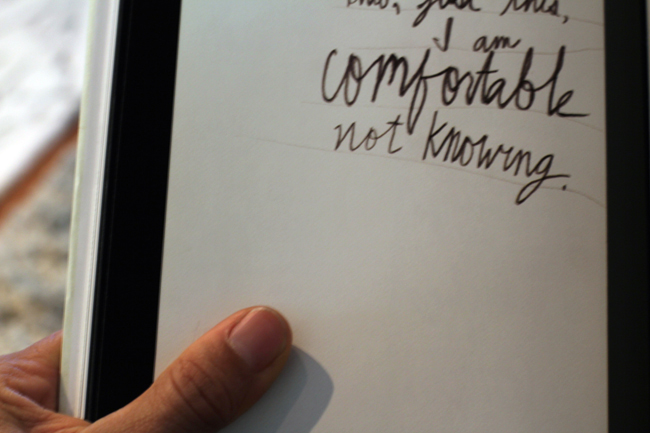 this, just this,
I am
comfortable
not knowing.